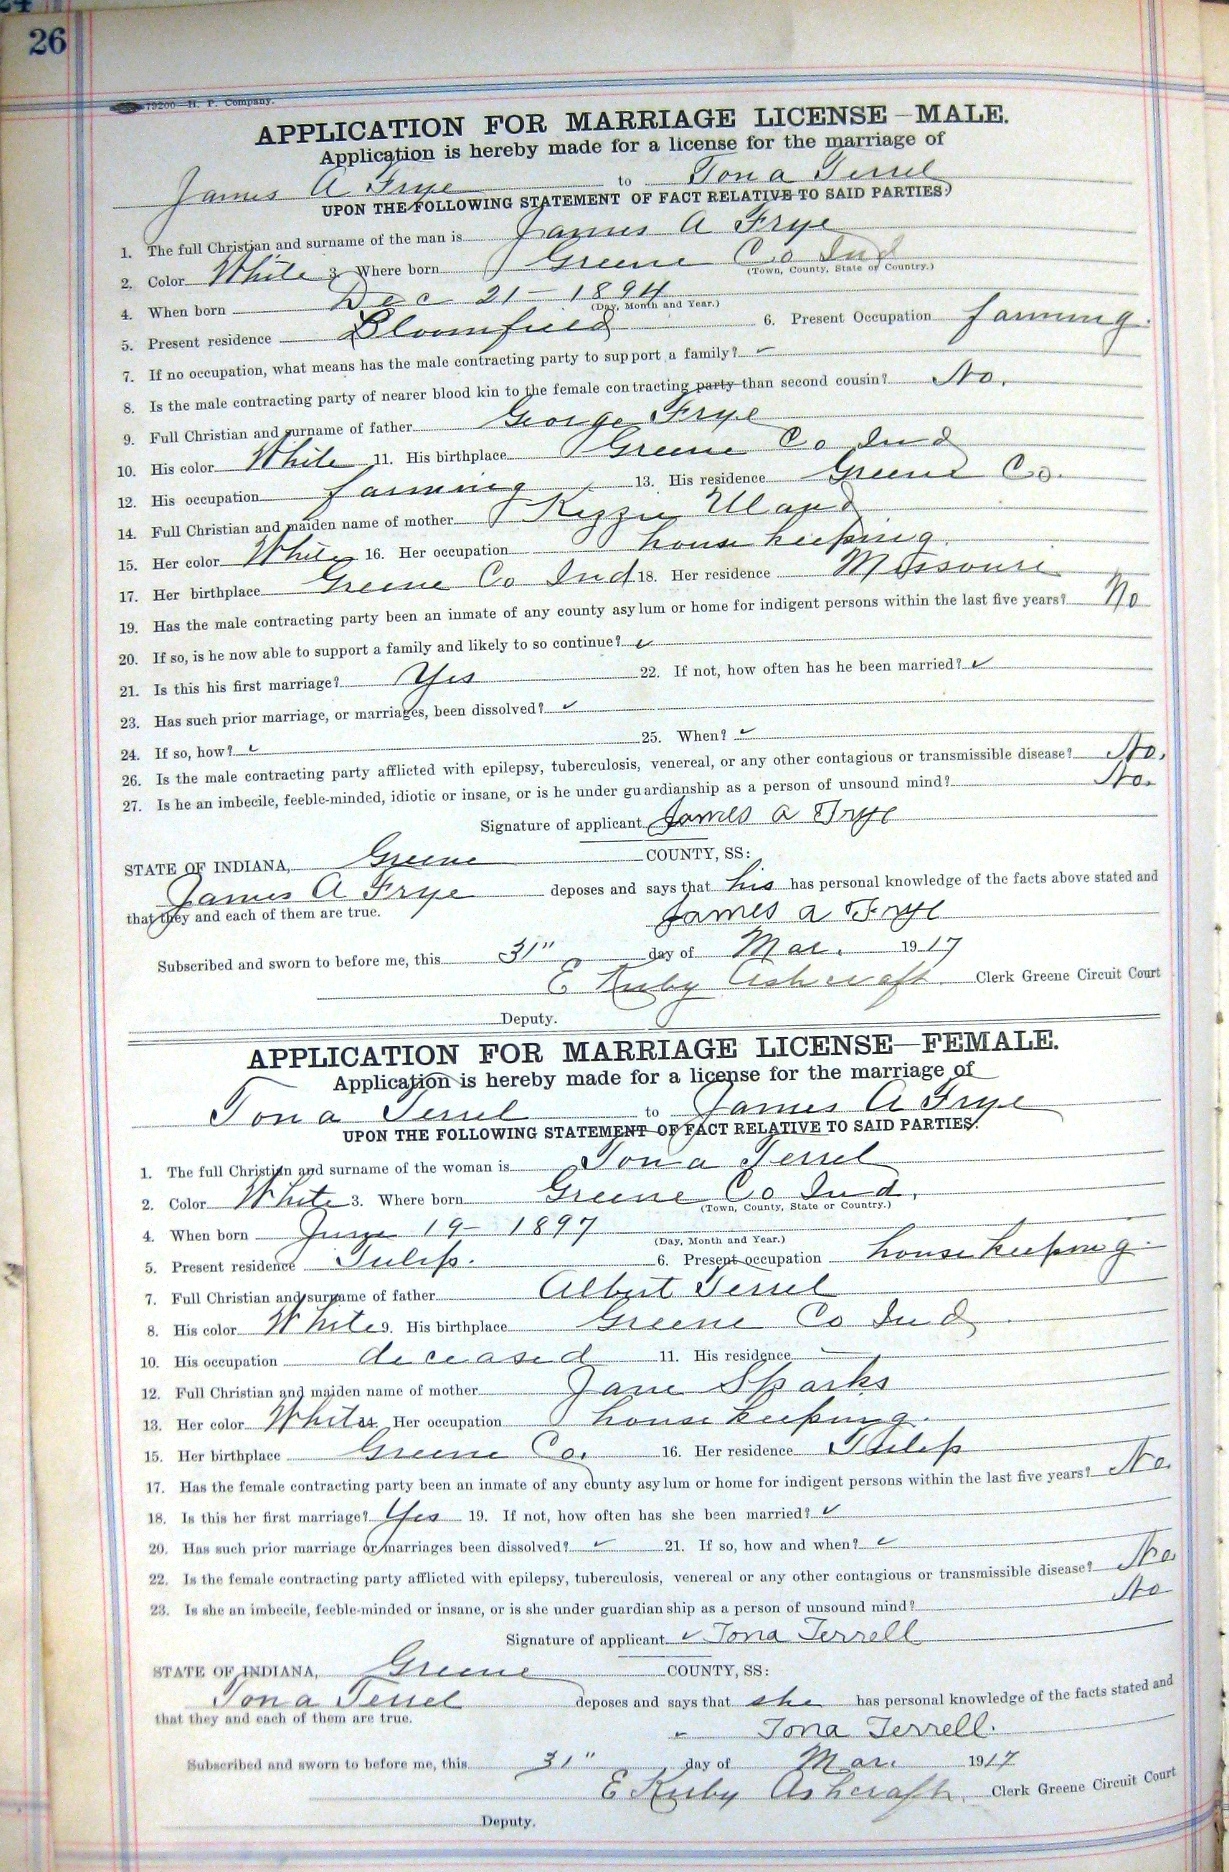 26
79200—H. P. Company.
APPLICATION FOR MARRIAGE LICENSE—MALE.
Application is hereby made for a license for the marriage of
James A Frye to Tona Terrel
UPON THE FOLLOWING STATEMENT OF FACT RELATIVE TO SAID PARTIES:
1. The full Christian and surname of the man is James A Frye
2. Color White 3. Where born Greene Co Ind
(Town, County, State or Country.)
4. When born Dec 21 - 1894
(Day, Month and Year.)
5. Present residence Bloomfield 6. Present Occupation farming.
7. If no occupation, what means has the male contracting party to support a family? ✓
8. Is the male contracting party of nearer blood kin to the female contracting party than second cousin? No.
9. Full Christian and surname of father George Frye
10. His color White 11. His birthplace Greene Co Ind
12. His occupation farming 13. His residence Greene Co.
14. Full Christian and maiden name of mother Kizzie Uland
15. Her color White 16. Her occupation house keeping.
17. Her birthplace Greene Co Ind 18. Her residence Missouri
19. Has the male contracting party been an inmate of any county asylum or home for indigent persons within the last five years? No
20. If so, is he now able to support a family and likely to so continue? ✓
21. Is this his first marriage? Yes 22. If not, how often has he been married? ✓
23. Has such prior marriage, or marriages, been dissolved? ✓
24. If so, how? ✓ 25. When? ✓
26. Is the male contracting party afflicted with epilepsy, tuberculosis, venereal, or any other contagious or transmissible disease? No.
27. Is he an imbecile, feeble-minded, idiotic or insane, or is he under guardianship as a person of unsound mind? No.
Signature of applicant James a Frye
STATE OF INDIANA, Greene COUNTY, SS:
James A Frye deposes and says that his has personal knowledge of the facts above stated and
that they and each of them are true.
James a Frye
Subscribed and sworn to before me, this 31" day of Mar. 1917
E Kirby Ashcraft. Clerk Greene Circuit Court
Deputy.
APPLICATION FOR MARRIAGE LICENSE—FEMALE.
Application is hereby made for a license for the marriage of
Tona Terrel to James A Frye
UPON THE FOLLOWING STATEMENT OF FACT RELATIVE TO SAID PARTIES:
1. The full Christian and surname of the woman is Tona Terrel
2. Color White 3. Where born Greene Co Ind.
(Town, County, State or Country.)
4. When born June 19 - 1897
(Day, Month and Year.)
5. Present residence Tulip. 6. Present occupation house keeping.
7. Full Christian and surname of father Albert Terrel
8. His color White 9. His birthplace Greene Co Ind
10. His occupation deceased 11. His residence —
12. Full Christian and maiden name of mother Jane Sparks
13. Her color White 14. Her occupation house keeping.
15. Her birthplace Greene Co. 16. Her residence Tulip
17. Has the female contracting party been an inmate of any county asylum or home for indigent persons within the last five years? No.
18. Is this her first marriage? Yes 19. If not, how often has she been married? ✓
20. Has such prior marriage or marriages been dissolved? ✓ 21. If so, how and when? ✓
22. Is the female contracting party afflicted with epilepsy, tuberculosis, venereal or any other contagious or transmissible disease? No
23. Is she an imbecile, feeble-minded or insane, or is she under guardianship as a person of unsound mind? No
Signature of applicant ✓ Tona Terrell
STATE OF INDIANA, Greene COUNTY, SS:
Tona Terrel deposes and says that she has personal knowledge of the facts stated and
that they and each of them are true.
✓ Tona Terrell.
Subscribed and sworn to before me, this 31" day of Mar. 1917
E Kirby Ashcraft. Clerk Greene Circuit Court
Deputy.